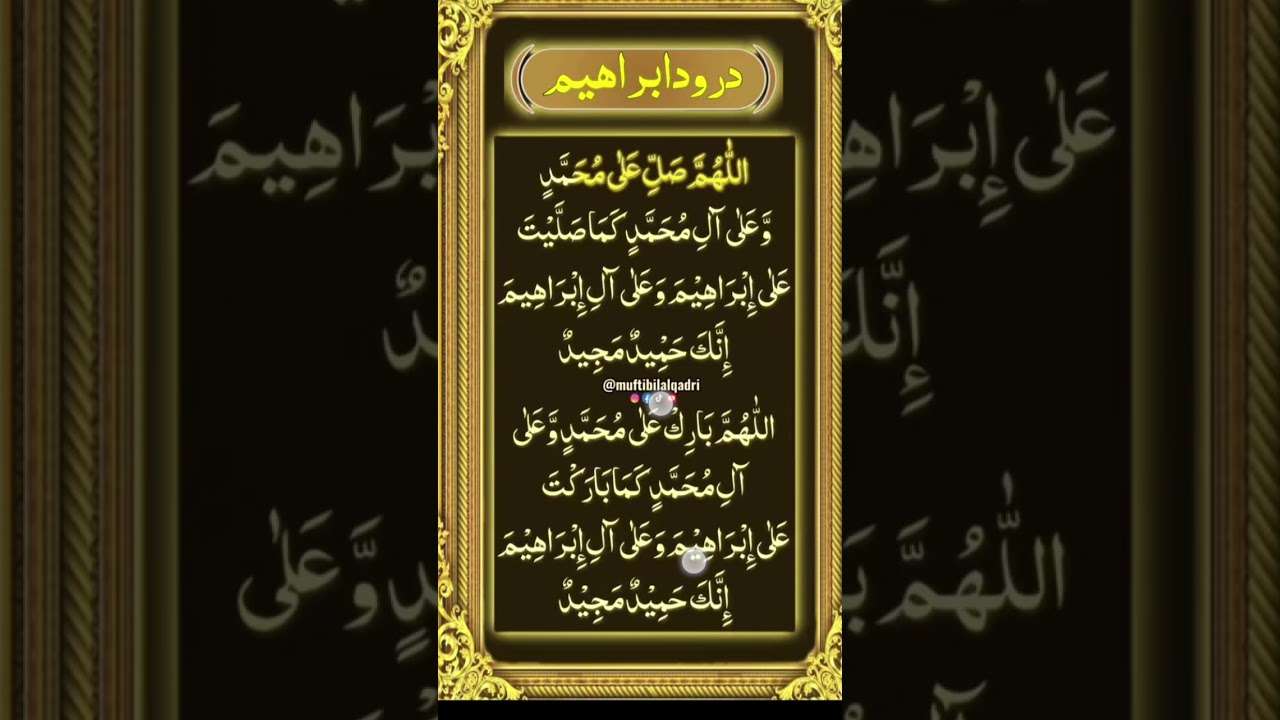 درودابراهیم
اللّٰهُمَّ صَلِّ عَلٰى مُحَمَّدٍ
وَّعَلٰى آلِ مُحَمَّدٍ كَمَا صَلَّيْتَ
عَلٰى إِبْرَاهِيْمَ وَعَلٰى آلِ إِبْرَاهِيمَ
إِنَّكَ حَمِيْدٌ مَجِيدٌ
@muftibilalqadri
اللّٰهُمَّ بَارِكْ عَلٰى مُحَمَّدٍ وَّعَلٰى
آلِ مُحَمَّدٍ كَمَا بَارَكْتَ
عَلٰى إِبْرَاهِيْمَ وَعَلٰى آلِ إِبْرَاهِيْمَ
إِنَّكَ حَمِيْدٌ مَجِيْدٌ